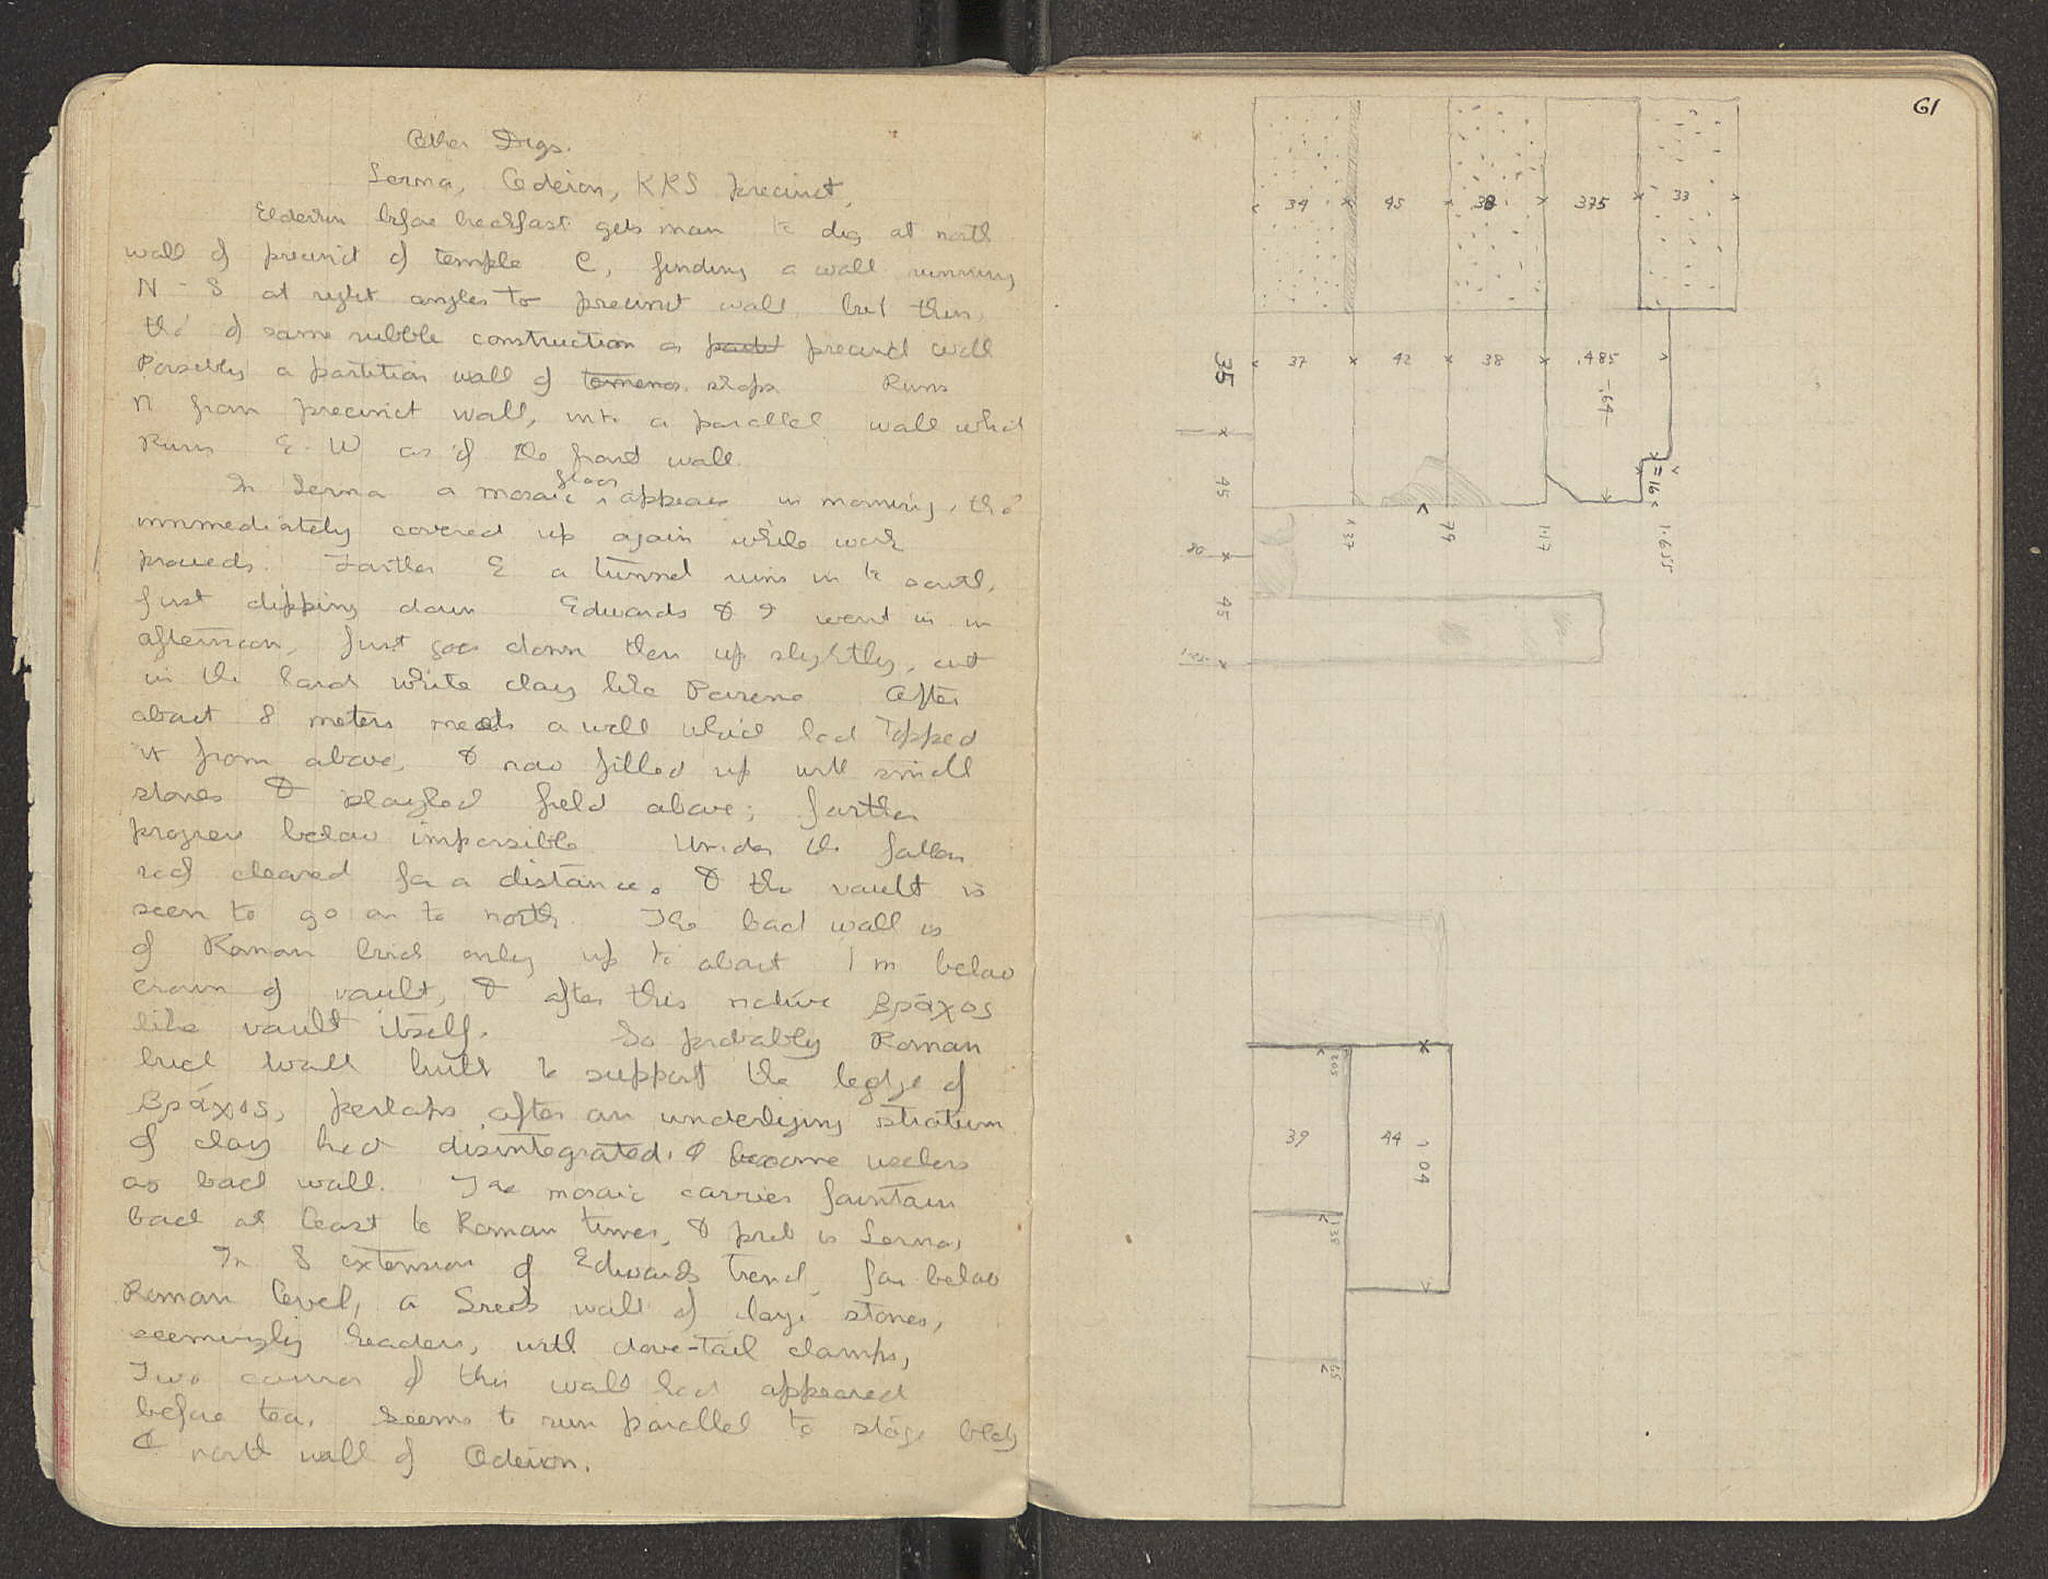 Other Digs.
Lerna, Odeion, KRS precinct,
Elderkin before breakfast gets man to dig at north
wall of precinct of temple C, finding a wall running
N - S at right angles to precinct wall, but thin,
tho' of same rubble construction as precinct wall
Possibly a partition wall of temenos. shops. Runs
N from precinct wall, into a parallel wall which
Runs E. W as if the front wall.
In Lerna a mosaic floor appears in morning, tho'
immediately covered up again while work
proceeds. Farther E a tunnel runs in to south,
first dipping down Edwards & I went in in
afternoon, first goes down then up slightly, cut
in the hard white clay like Peirene After
about 8 meters meets a well which had tapped
it from above, & now filled up with small
stones & ploughed field above; farther
progress below impossible Under the fallen
roof cleared for a distance. & the vault is
seen to go on to north. The back wall is
of Roman brick only up to about 1 m below
crown of vault, & after this native βράχος
like vault itself. So probably Roman
brick wall built to support the ledge of
βράχος, perhaps after an underlying stratum
of clay had disintegrated. & become useless
as back wall. The mosaic carries fountain
back at least to Roman times, & prob is Lerna,
In S extension of Edwards trench, far below
Roman level, a Greek wall of large stones,
seemingly headers, with dove-tail clamps,
Two courses of this wall had appeared
before tea. Seems to run parallel to stage bldg
& north wall of Odeion.
61
34 45 38 375 33
35 37 42 38 .485
.64
=16
45
.37 79 1.17 1.655
80
45
39 44 1.04